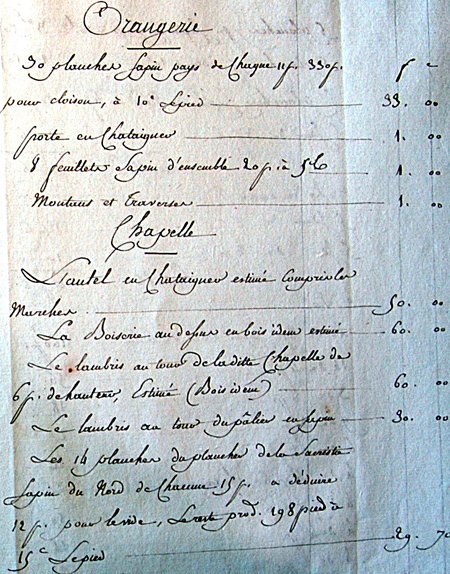 Orangerie
30 planches sapin pays de Chaque 11p. 330p. f c
pour cloison, à 10c Le pied 33. 00
porte en Chataigner 1. 00
8 feuillets sapin d'ensemble 20p à 5c 1. 00
Montans et Traverses 1. 00
Chapelle
L'autel en Chataigner estimé compris les
Marches. 50. 00
La Boiserie au dessus en bois idem estimé 60. 00
Le lambris au tour de la ditte Chapelle de
6p. de hauteur, Estimé (Bois idem) 60. 00
Le lambris au tour du pâlier en sapin 30. 00
Les 14 planches du plancher de la Sacristie
sapin du Nord de Chacune 15p. a déduire
12p. pour le vide, Le reste prod. 198 pied à
15c Le pied 29. 70